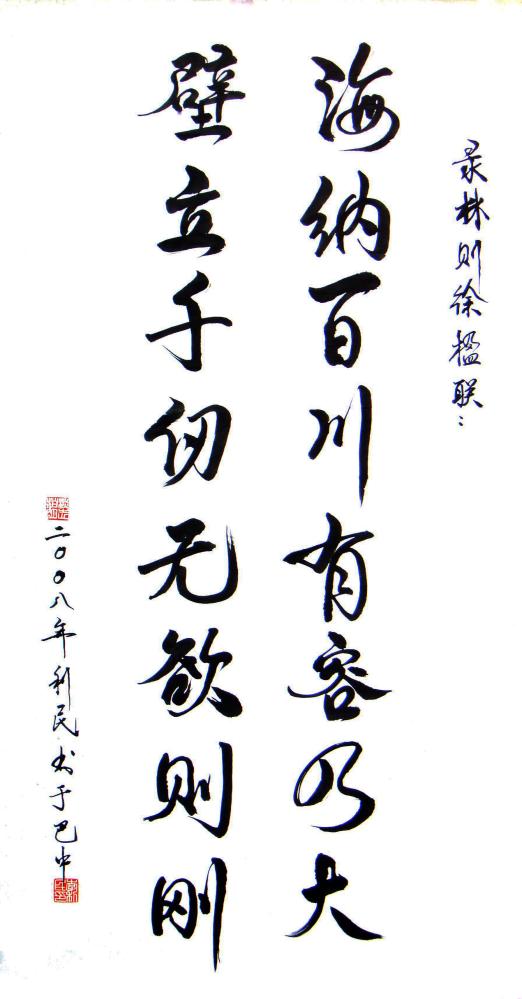 录林则徐楹联：
海纳百川有容乃大
壁立千仞无欲则刚
二〇〇八年利民书于巴中